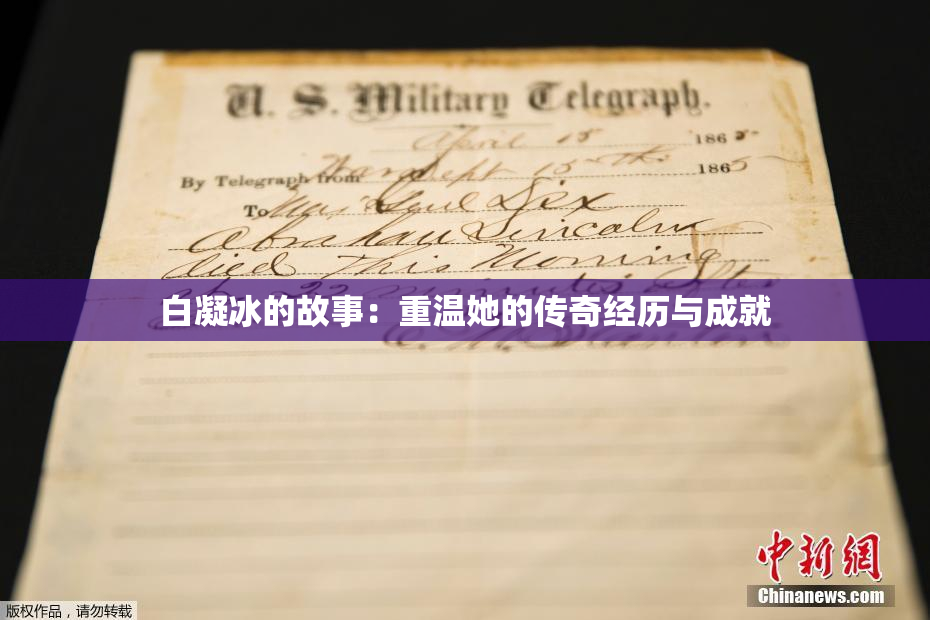 U. S. Military Telegraph.
April 15 1865
By Telegraph from War Dept 15th 1865
To Maj Genl Dix
Abraham Lincoln
died This Morning
at 22 minutes after
白凝冰的故事：重温她的传奇经历与成就
E. M. Stanton
中新網
Chinanews.com
版权作品，请勿转载